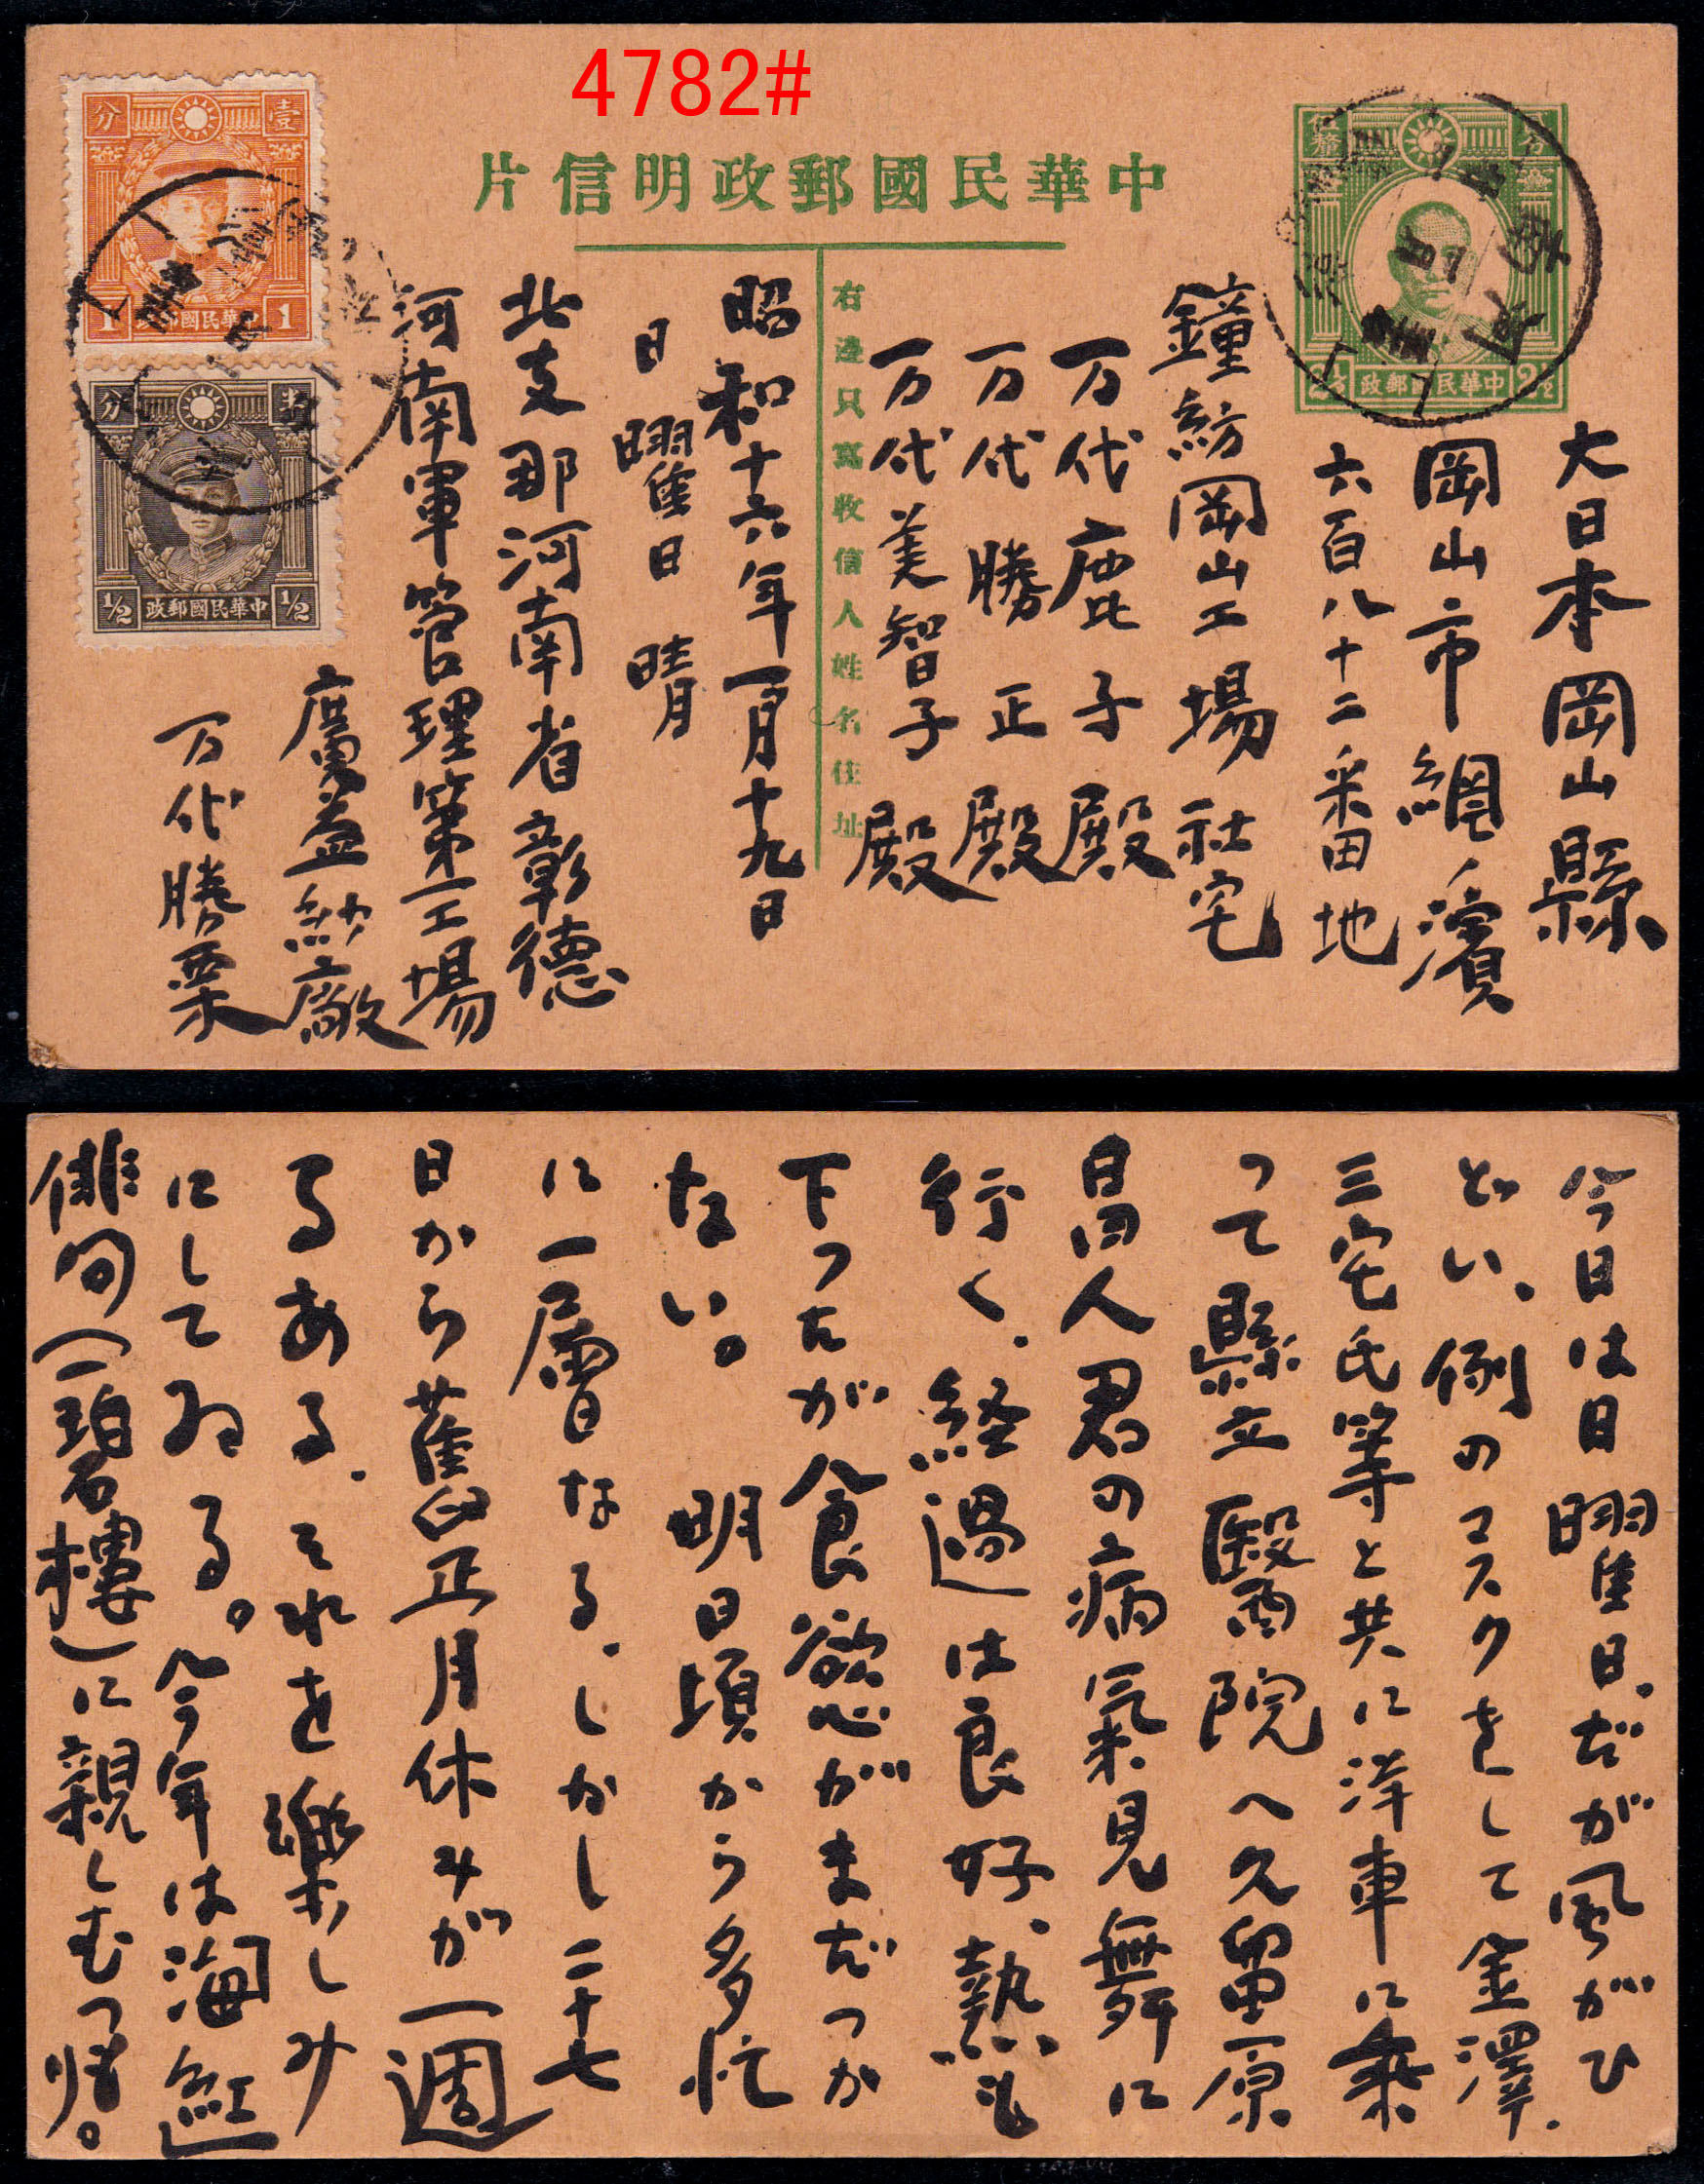 4782#
中華民國郵政明信片
右邊只寫收信人姓名住址
分 壹
1 中華民國郵政 1
分 半
1/2 中華民國郵政 1/2
中華民國郵政
河南
大日本岡山縣
岡山市網ノ濱
六百八十二番田地
鐘紡岡山工場社宅
万代鹿子殿
万代勝正殿
万代美智子殿
昭和十六年一月十九日
日曜日 晴
北支那河南省彰德
河南軍管理第一工場
廣益紗廠
万代勝栗
今日は日曜日。だが風がひ
どい、例のコスクをして金澤、
三宅氏等と共に洋車に乗
って縣立醫院へ久留原
昌四人君の病氣見舞に
行く、経過は良好、熱も
下ったが食慾がまだつか
ない。明日頃から多忙
に一層なる、しかし二十七
日から舊正月休みが一週
るある、それを樂しみ
にしてゐる。今年は「海紅」
俳句(一碧樓)に親しむつ